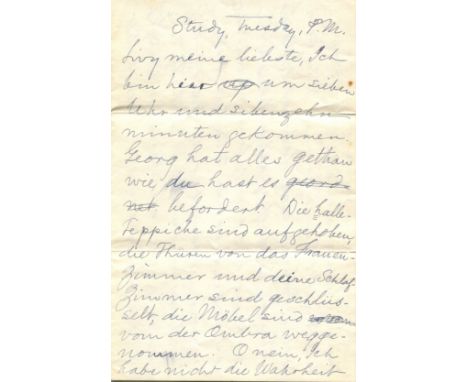 Study, Tuesday, P.M.
Livy meine liebste, Ich
bin hier um sieben
Uhr und sibenzehn
minuten gekommen.
Georg hat alles gethan
wie du hast es geord-
net befordert. Die halle-
Teppiche sind aufgehoben,
die Thüren von das Frauen-
Zimmer und deine Schlaf
Zimmer sind geschlus-
selt, die Möbel sind
vom der Ombra wegge-
nommen. O nein, Ich
habe nicht die Wahrheit